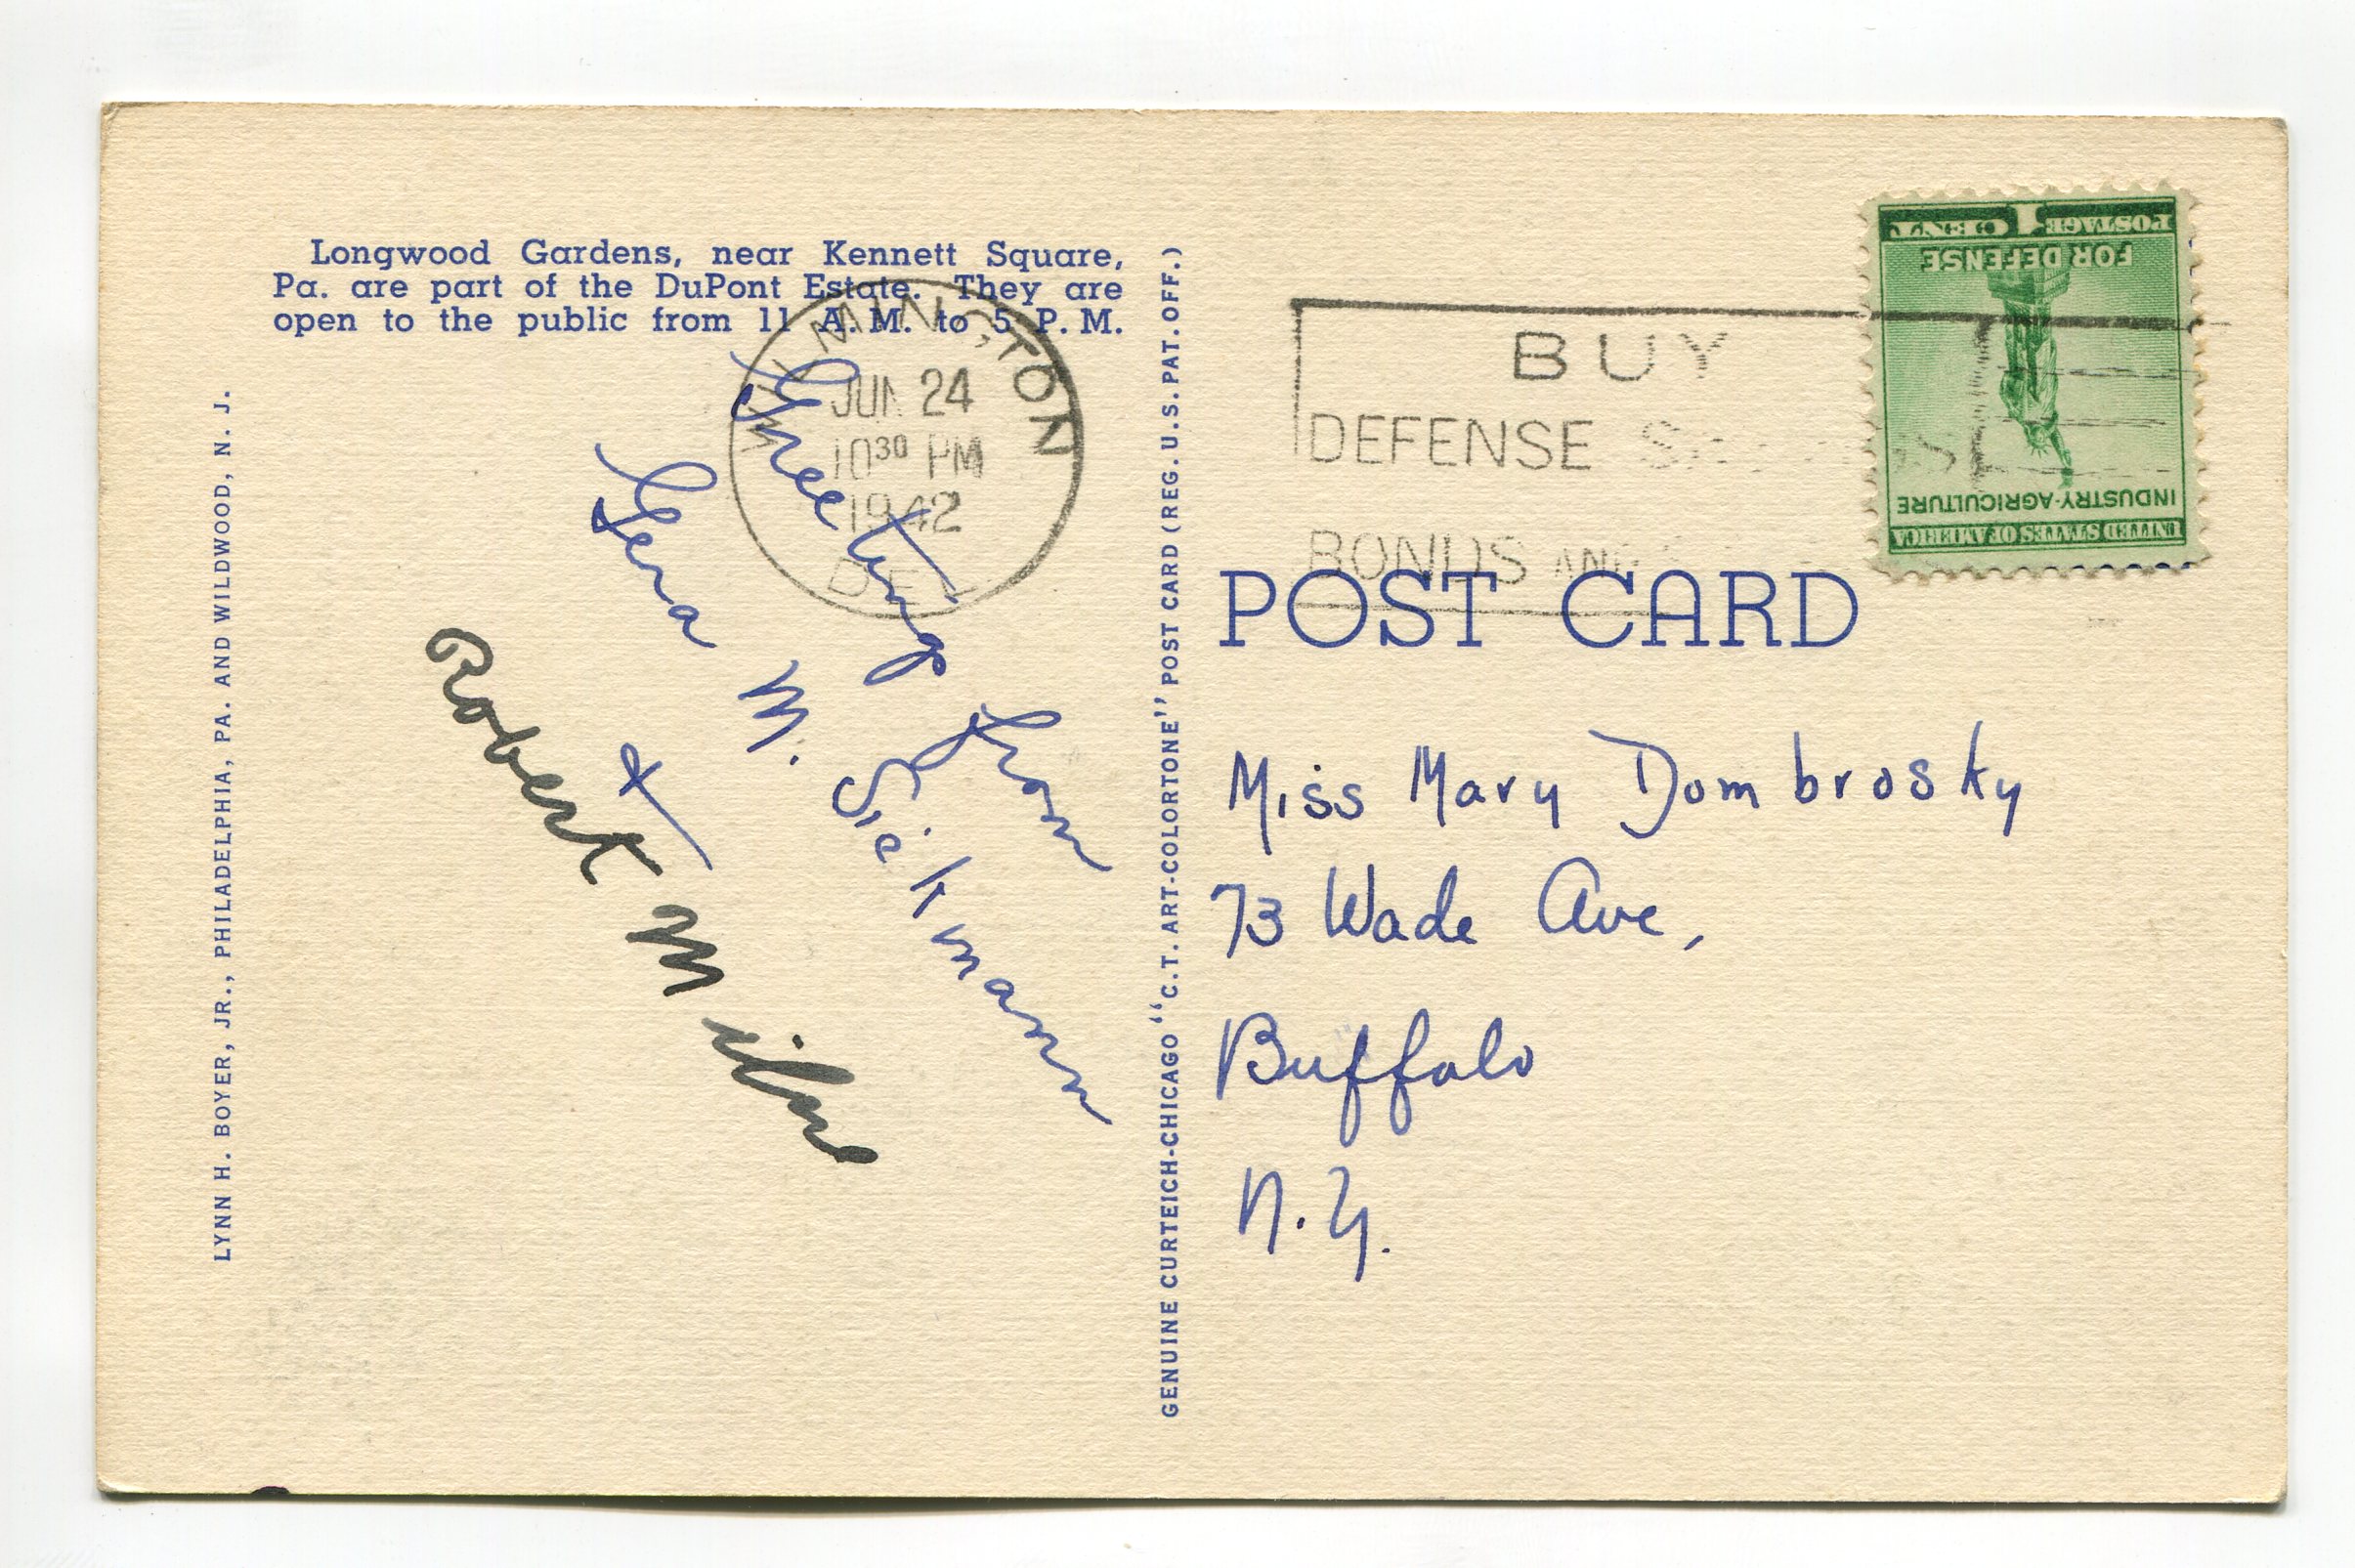 Longwood Gardens, near Kennett Square,
Pa. are part of the DuPont Estate. They are
open to the public from 11 A. M. to 5 P. M.
WILMINGTON
JUN 24
10³⁰ PM
1942
DEL
Greetings from
M. Sickmann
+
Robert
LYNN H. BOYER, JR., PHILADELPHIA, PA. AND WILDWOOD, N. J.
GENUINE CURTEICH-CHICAGO "C.T. ART-COLORTONE" POST CARD (REG. U.S. PAT. OFF.)
BUY
DEFENSE
BONDS AND
1 CENT POSTAGE
FOR DEFENSE
INDUSTRY-AGRICULTURE
UNITED STATES OF AMERICA
POST CARD
Miss Mary Dombrosky
73 Wade Ave,
Buffalo
N.Y.